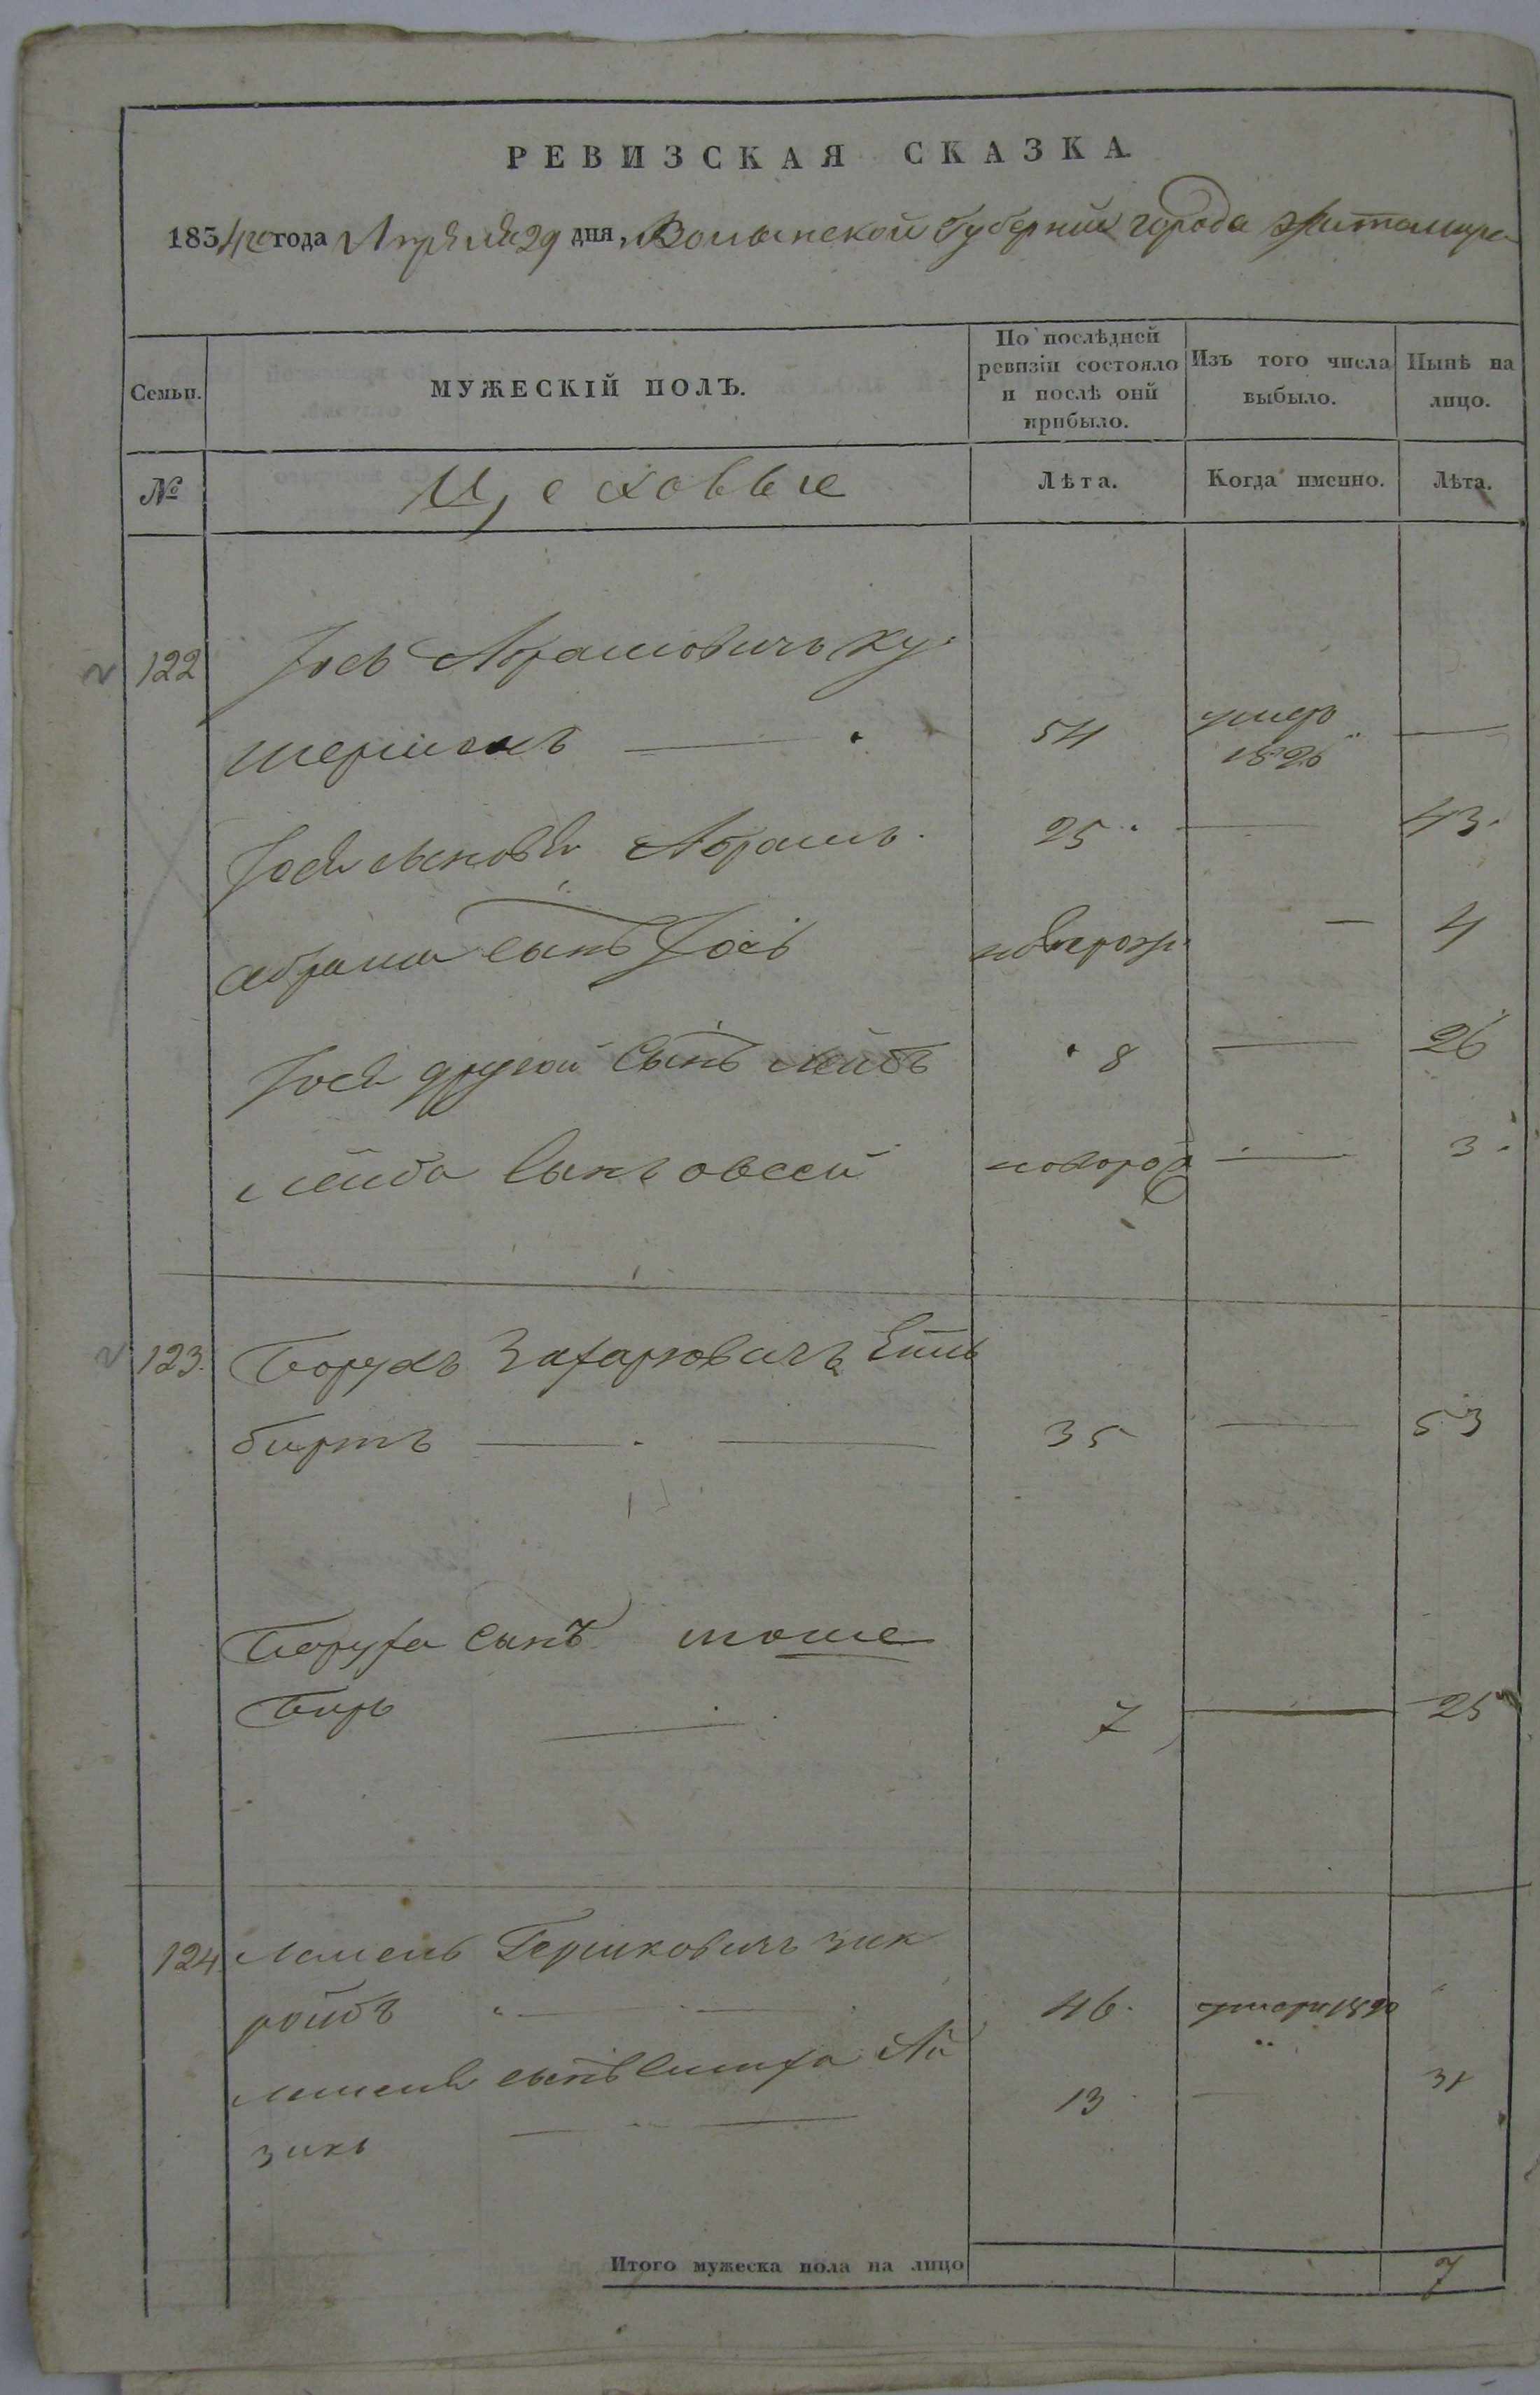 РЕВИЗСКАЯ СКАЗКА.
1834го года Апреля 29 дня, Волынской Губернии города Житомира
Семьи.
МУЖЕСКІЙ ПОЛЪ.
По послѣдней ревизіи состояло и послѣ оной прибыло.
Изъ того числа выбыло.
Нынѣ на лицо.
№
Цеховые
Лѣта.
Когда именно.
Лѣта.
122
Іось Абрамовичъ Ку
шерманъ — 54 умеръ 1826 —
Іося сыновья Абрамъ 25 — 43
Абрама сынъ Іось новорож — 4
Іося другой сынъ Лейбъ 8 — 26
Лейба сынъ овсей новорож — 3
123. Борухъ Захаровичъ
биртъ — 35 — 53
Боруха сынъ мошe
Беръ — 7 — 25
124 Гершковичъ зик
ройдъ — 46
сынъ Симха Ай
зикъ — 13 — 31
Итого мужеска пола на лицо 7